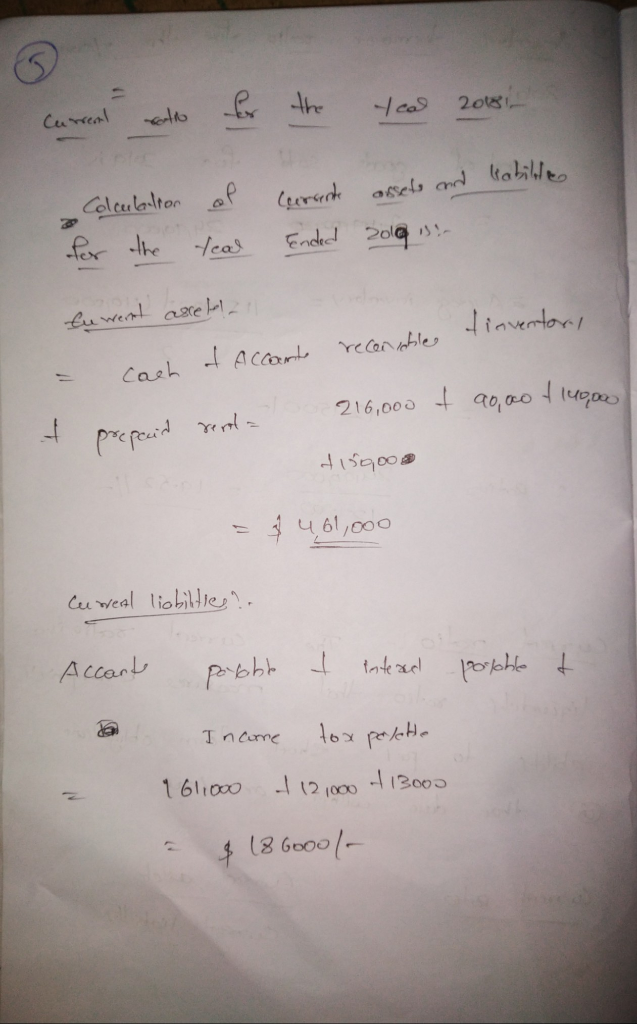 5
=
Current ratio for the Year 2018:-
Calculation of Current assets and liabilities
for the Year Ended 2019 is:-
Current assets:-
= Cash + Accounts receivables + inventory
+ prepaid rent = 216,000 + 90,000 + 140,000
+ 150,000
= $ 4,61,000
Current liabilities:-
Accounts payable + interest payable +
Income tax payable
= 161,000 + 12,000 + 13000
= $ 186000/-